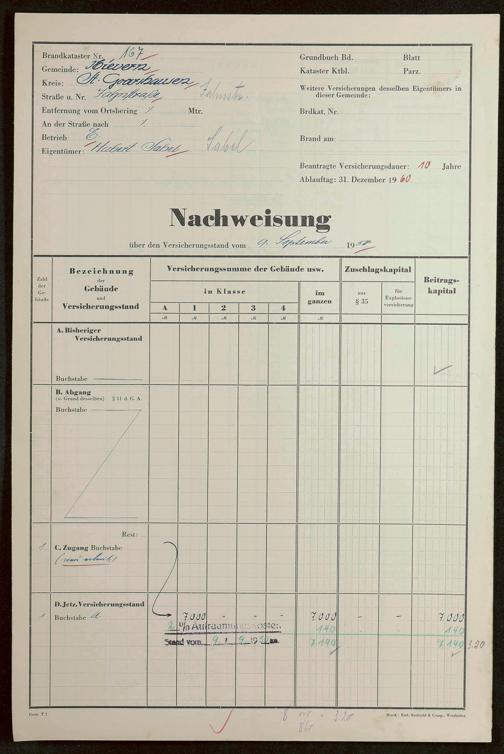 Brandkataster Nr. 167
Gemeinde: Nievern
Kreis: St. Goarshausen
Straße u. Nr.
Entfernung vom Ortsbering / Mtr.
An der Straße nach /
Betrieb E.
Eigentümer: Hubert Sabel Sabel
Grundbuch Bd. Blatt
Kataster Ktbl. Parz.
Weitere Versicherungen desselben Eigentümers in
dieser Gemeinde:
Brdkat. Nr.
Brand am
Beantragte Versicherungsdauer: 10 Jahre
Ablauftag: 31. Dezember 1960
Nachweisung
über den Versicherungsstand vom 9. September 1950
Zahl
der
Ge-
bäude
Bezeichnung
der
Gebäude
und
Versicherungsstand
Versicherungssumme der Gebäude usw.
in Klasse
A 1 2 3 4
im
ganzen
Zuschlagskapital
aus
§ 35
für
Explosions-
versicherung
Beitrags-
kapital
A. Bisheriger
Versicherungsstand
Buchstabe
B. Abgang
(u. Grund desselben) § 11 d. G. A.
Buchstabe
Rest:
C. Zugang Buchstabe
Buchstabe
D. Jetz. Versicherungsstand
1 Buchstabe a 7000 - - - 7.000 - - 7.000
2 % Aufräumungskosten 140 140
Stand vom 9. 9. 7.140 7.140 3.20
Form. F 1